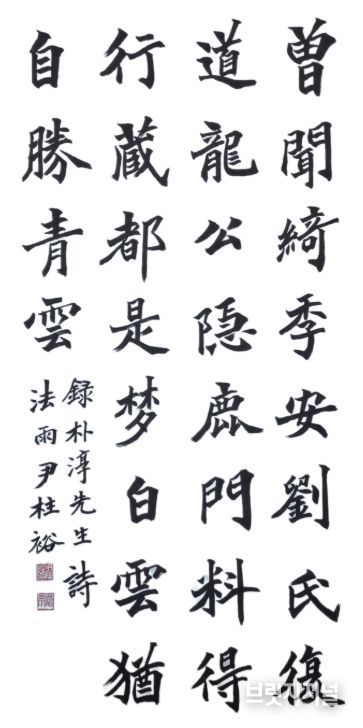 曾聞綺季安劉氏復
道龍公隐鹿門料得
行藏都是梦白雲猶
自勝青雲
録朴淳先生詩
法雨尹柱裕
브릿지저널